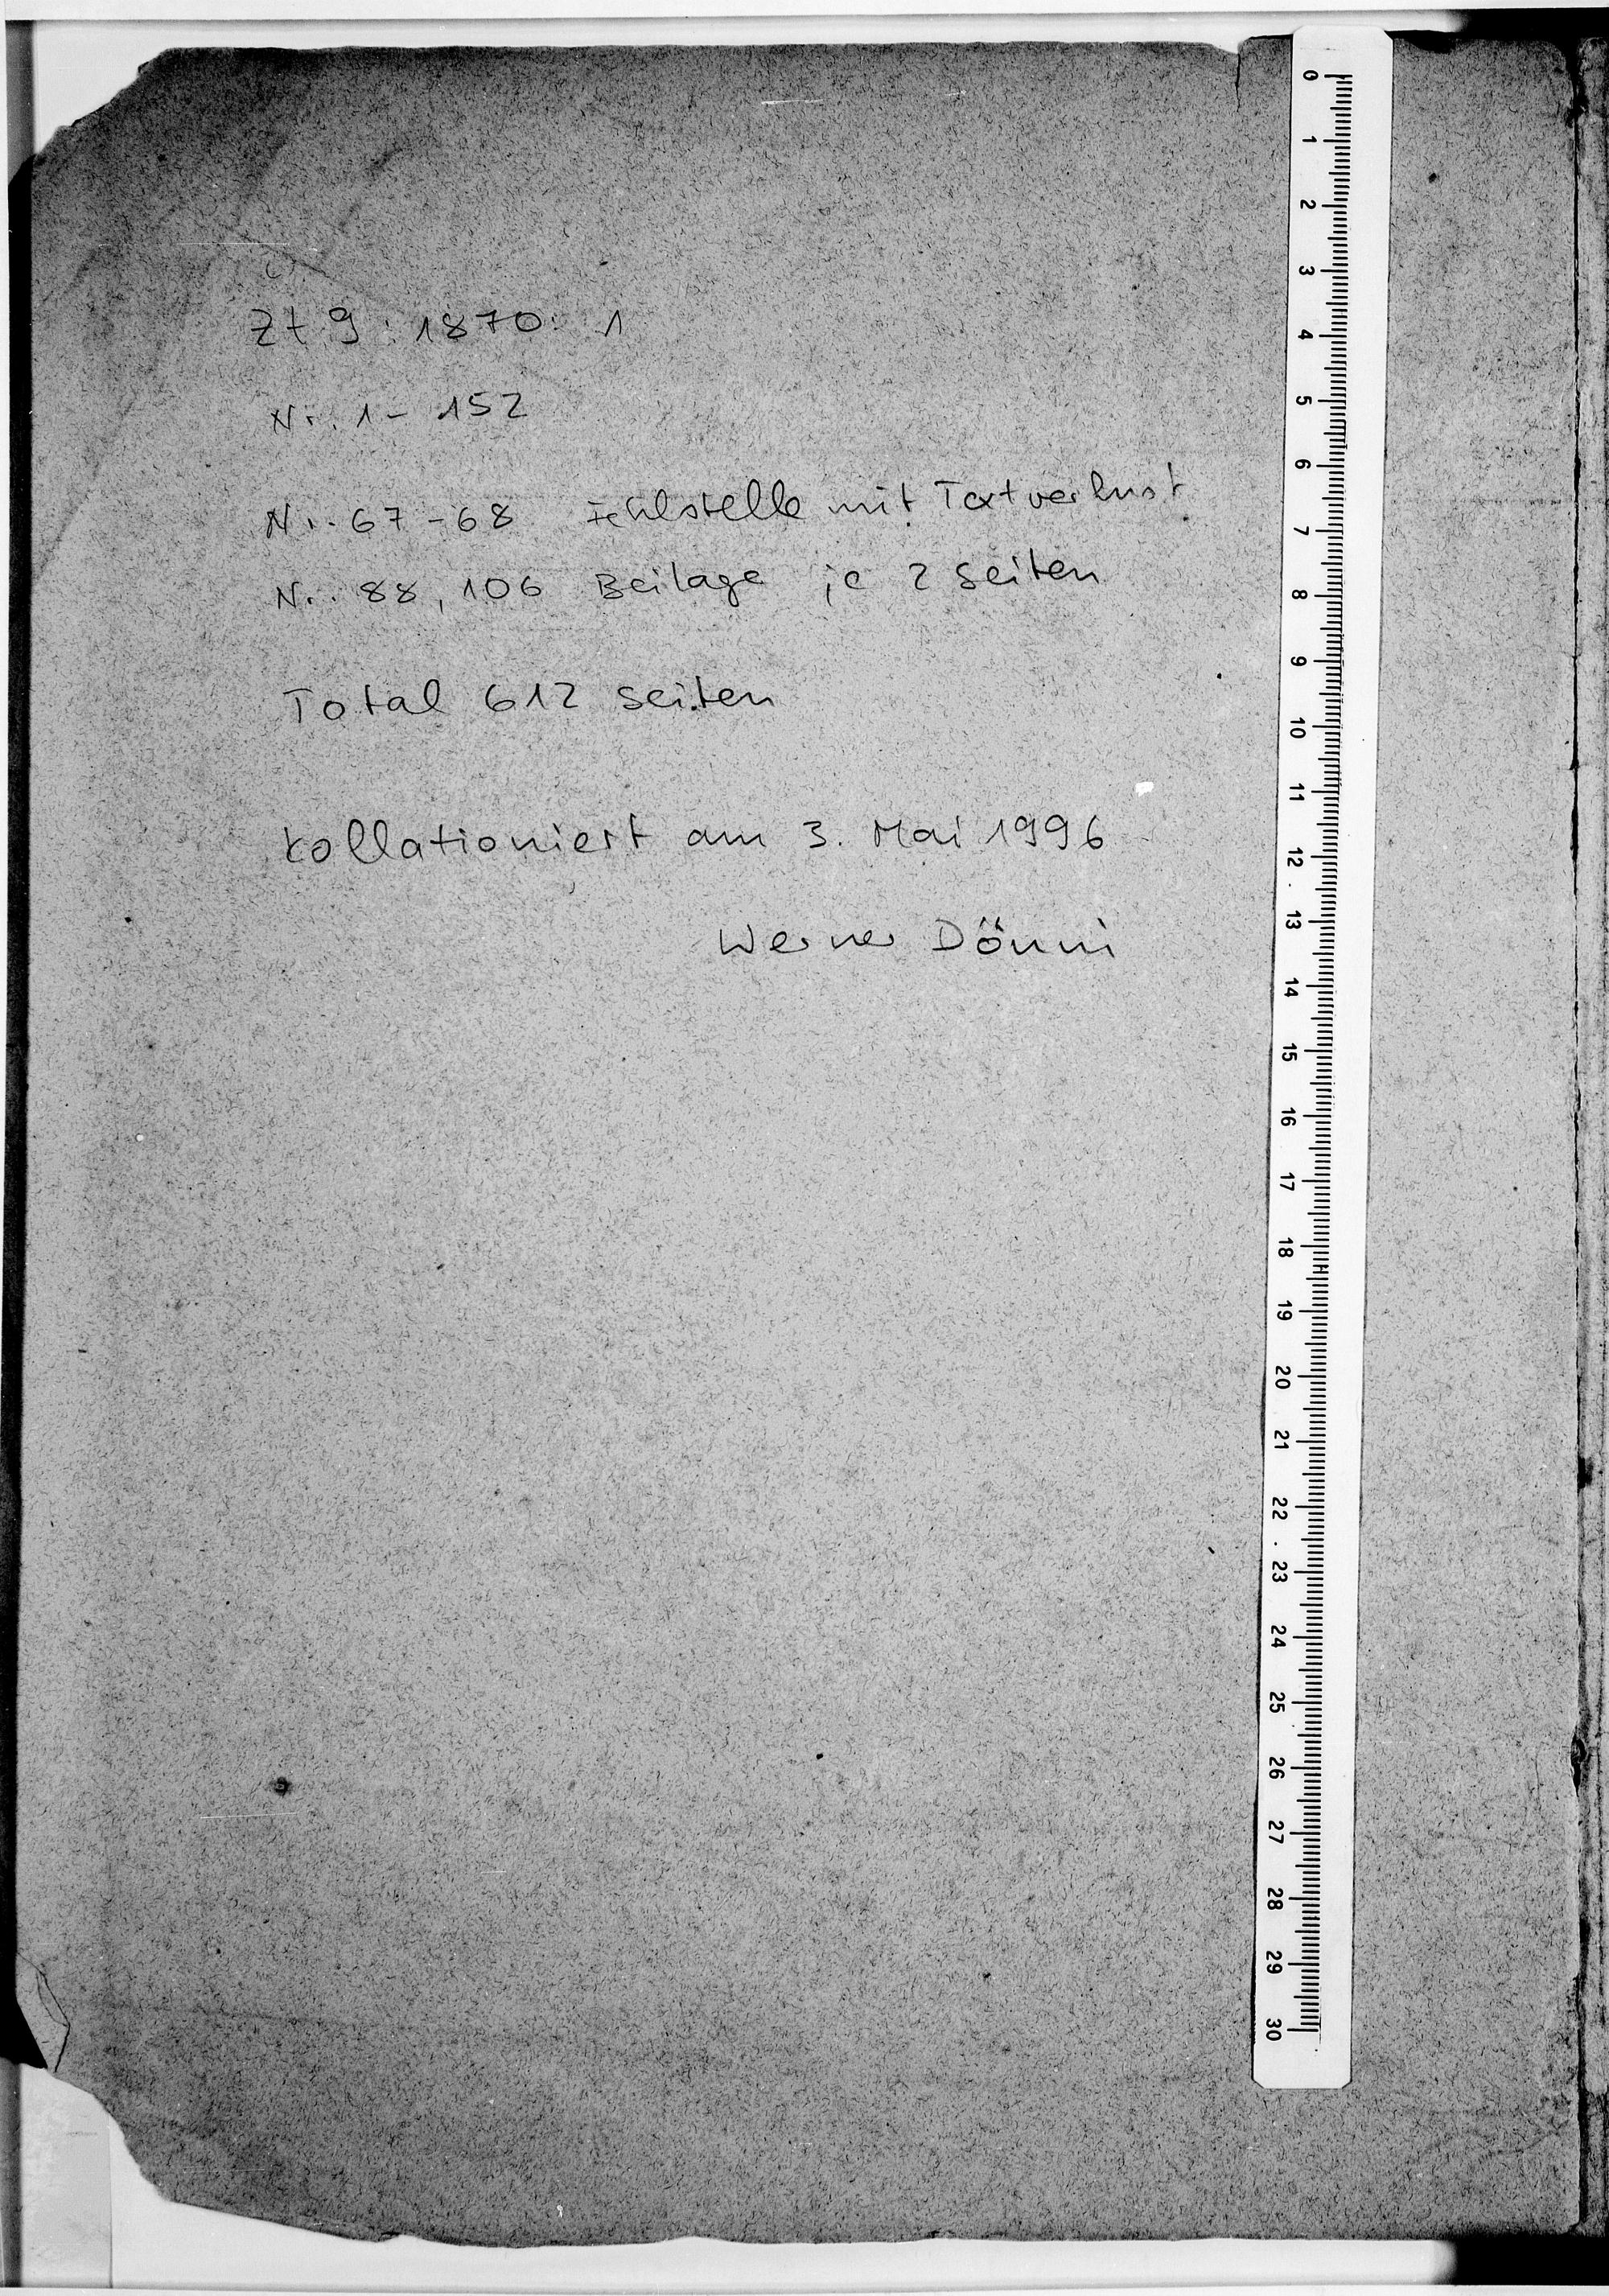 Zt 9 : 1870 : 1
Nr. 1 - 152
Nr. 67 - 68 Fehlstelle mit Textverlust
Nr. 88, 106 Beilage je 2 Seiten
Total 612 Seiten
Kollationiert am 3. Mai 1996
Werner Dönni
0
1
2
3
4
5
6
7
8
9
10
11
12
13
14
15
16
17
18
19
20
21
22
23
24
25
26
27
28
29
30